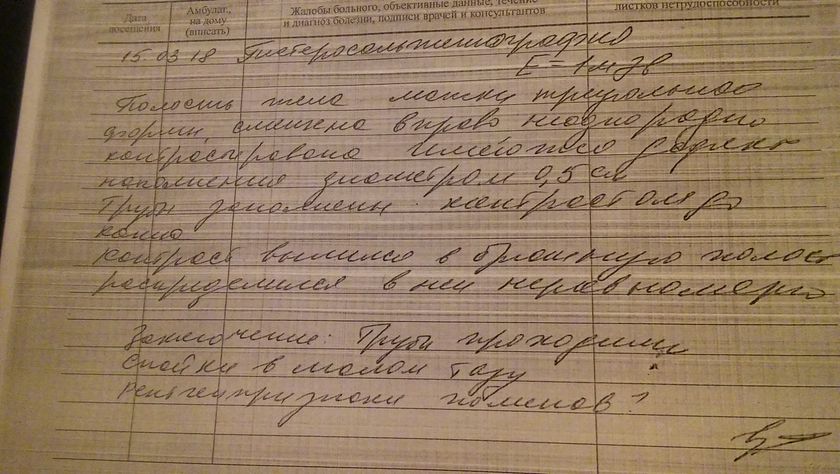 Дата посещения
Амбулат., на дому (вписать)
Жалобы больного, объективные данные, течение и диагноз болезни, подписи врачей и консультантов
листков нетрудоспособности
15.03 18 Гистеросальпингография
E = 1 мЗв
Полость тела матки треугольной
формы, смещена вправо неоднородно
контрастирована имеются дефект
наполнения диаметром 0,5 см
Трубы заполнены контрастом до
конца
контраст вылился в брюшную полость
распределился в ней неравномерно
Заключение: Трубы проходимы
Спайки в малом тазу
Рентгенпризнаки полипов?